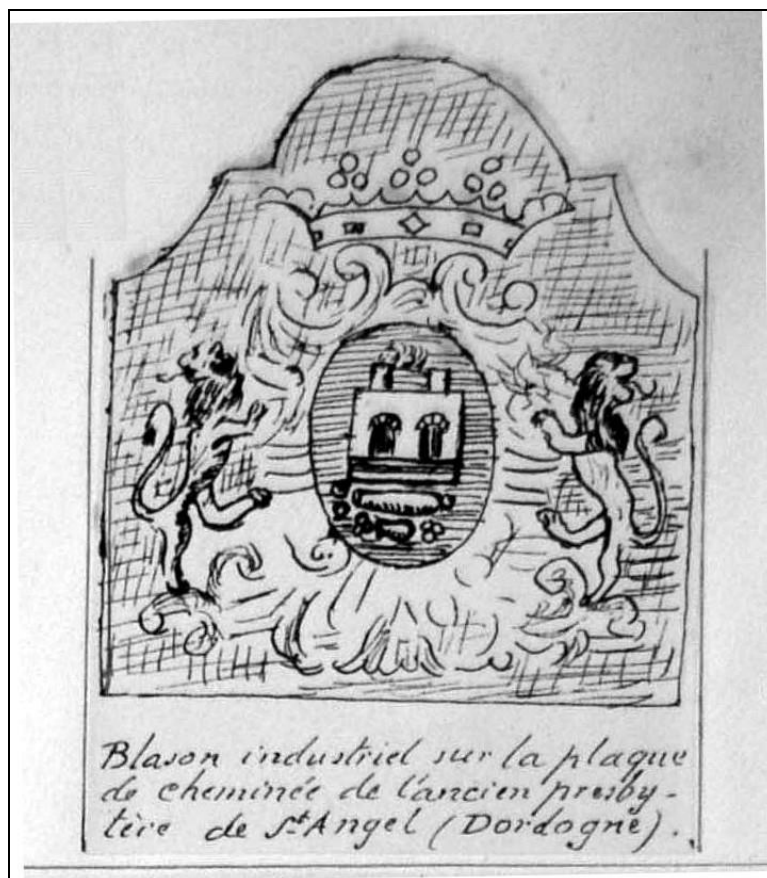 Blason industriel sur la plaque
de cheminée de l'ancien presby-
tère de St Angel (Dordogne).